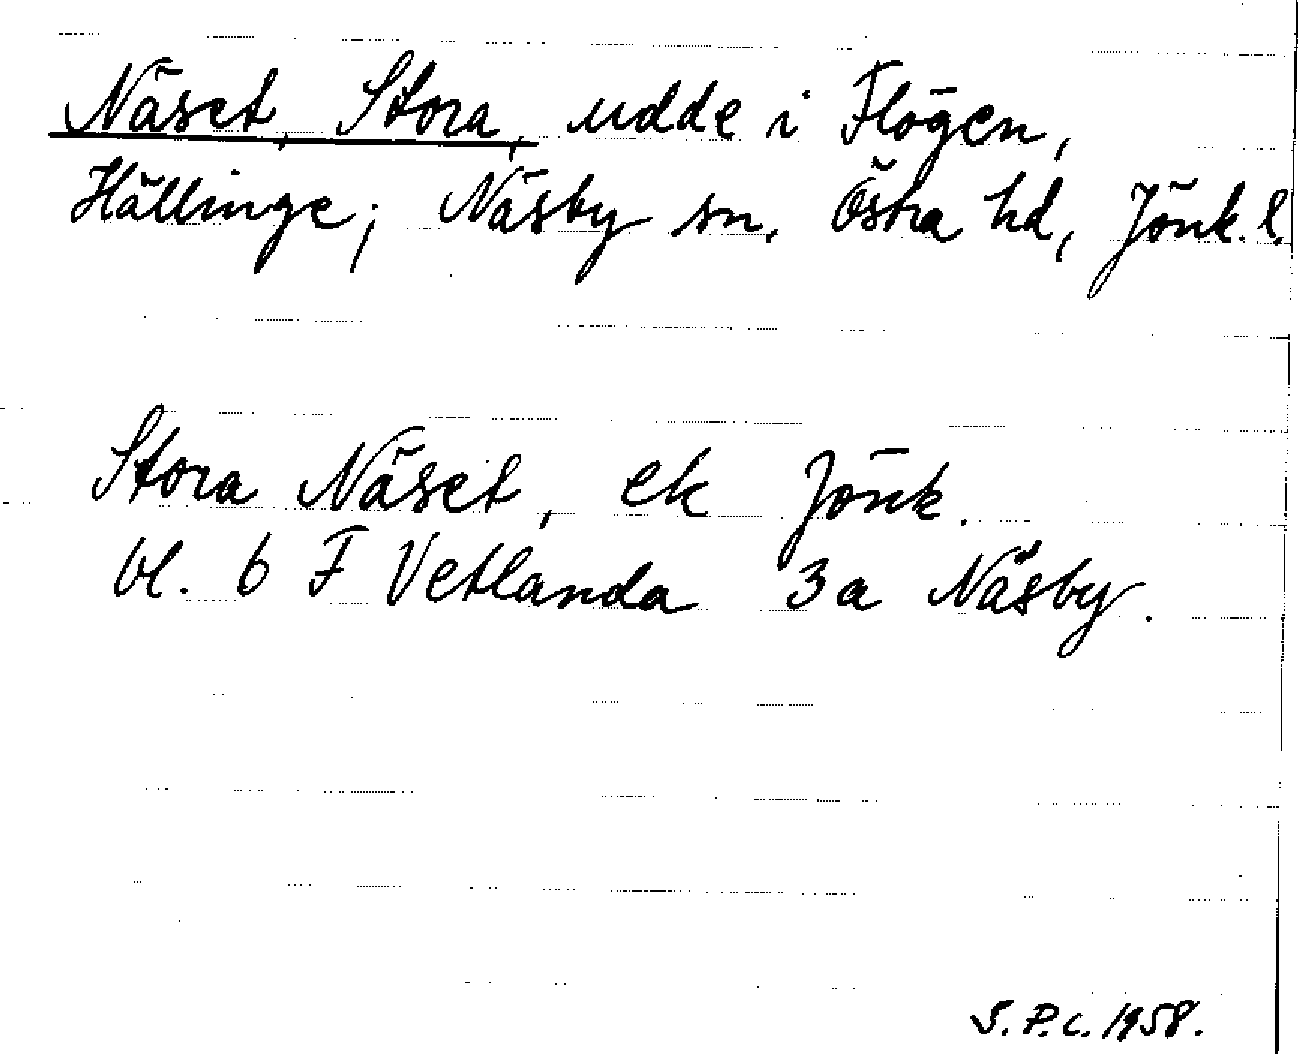 Näset, Stora, udde i Flögen,
Hällinge; Näsby sn, Östra hd, Jönk. l.
Stora Näset, ek Jönk.
bl. 6 F Vetlanda 3a Näsby.
S.P.C. 1958.